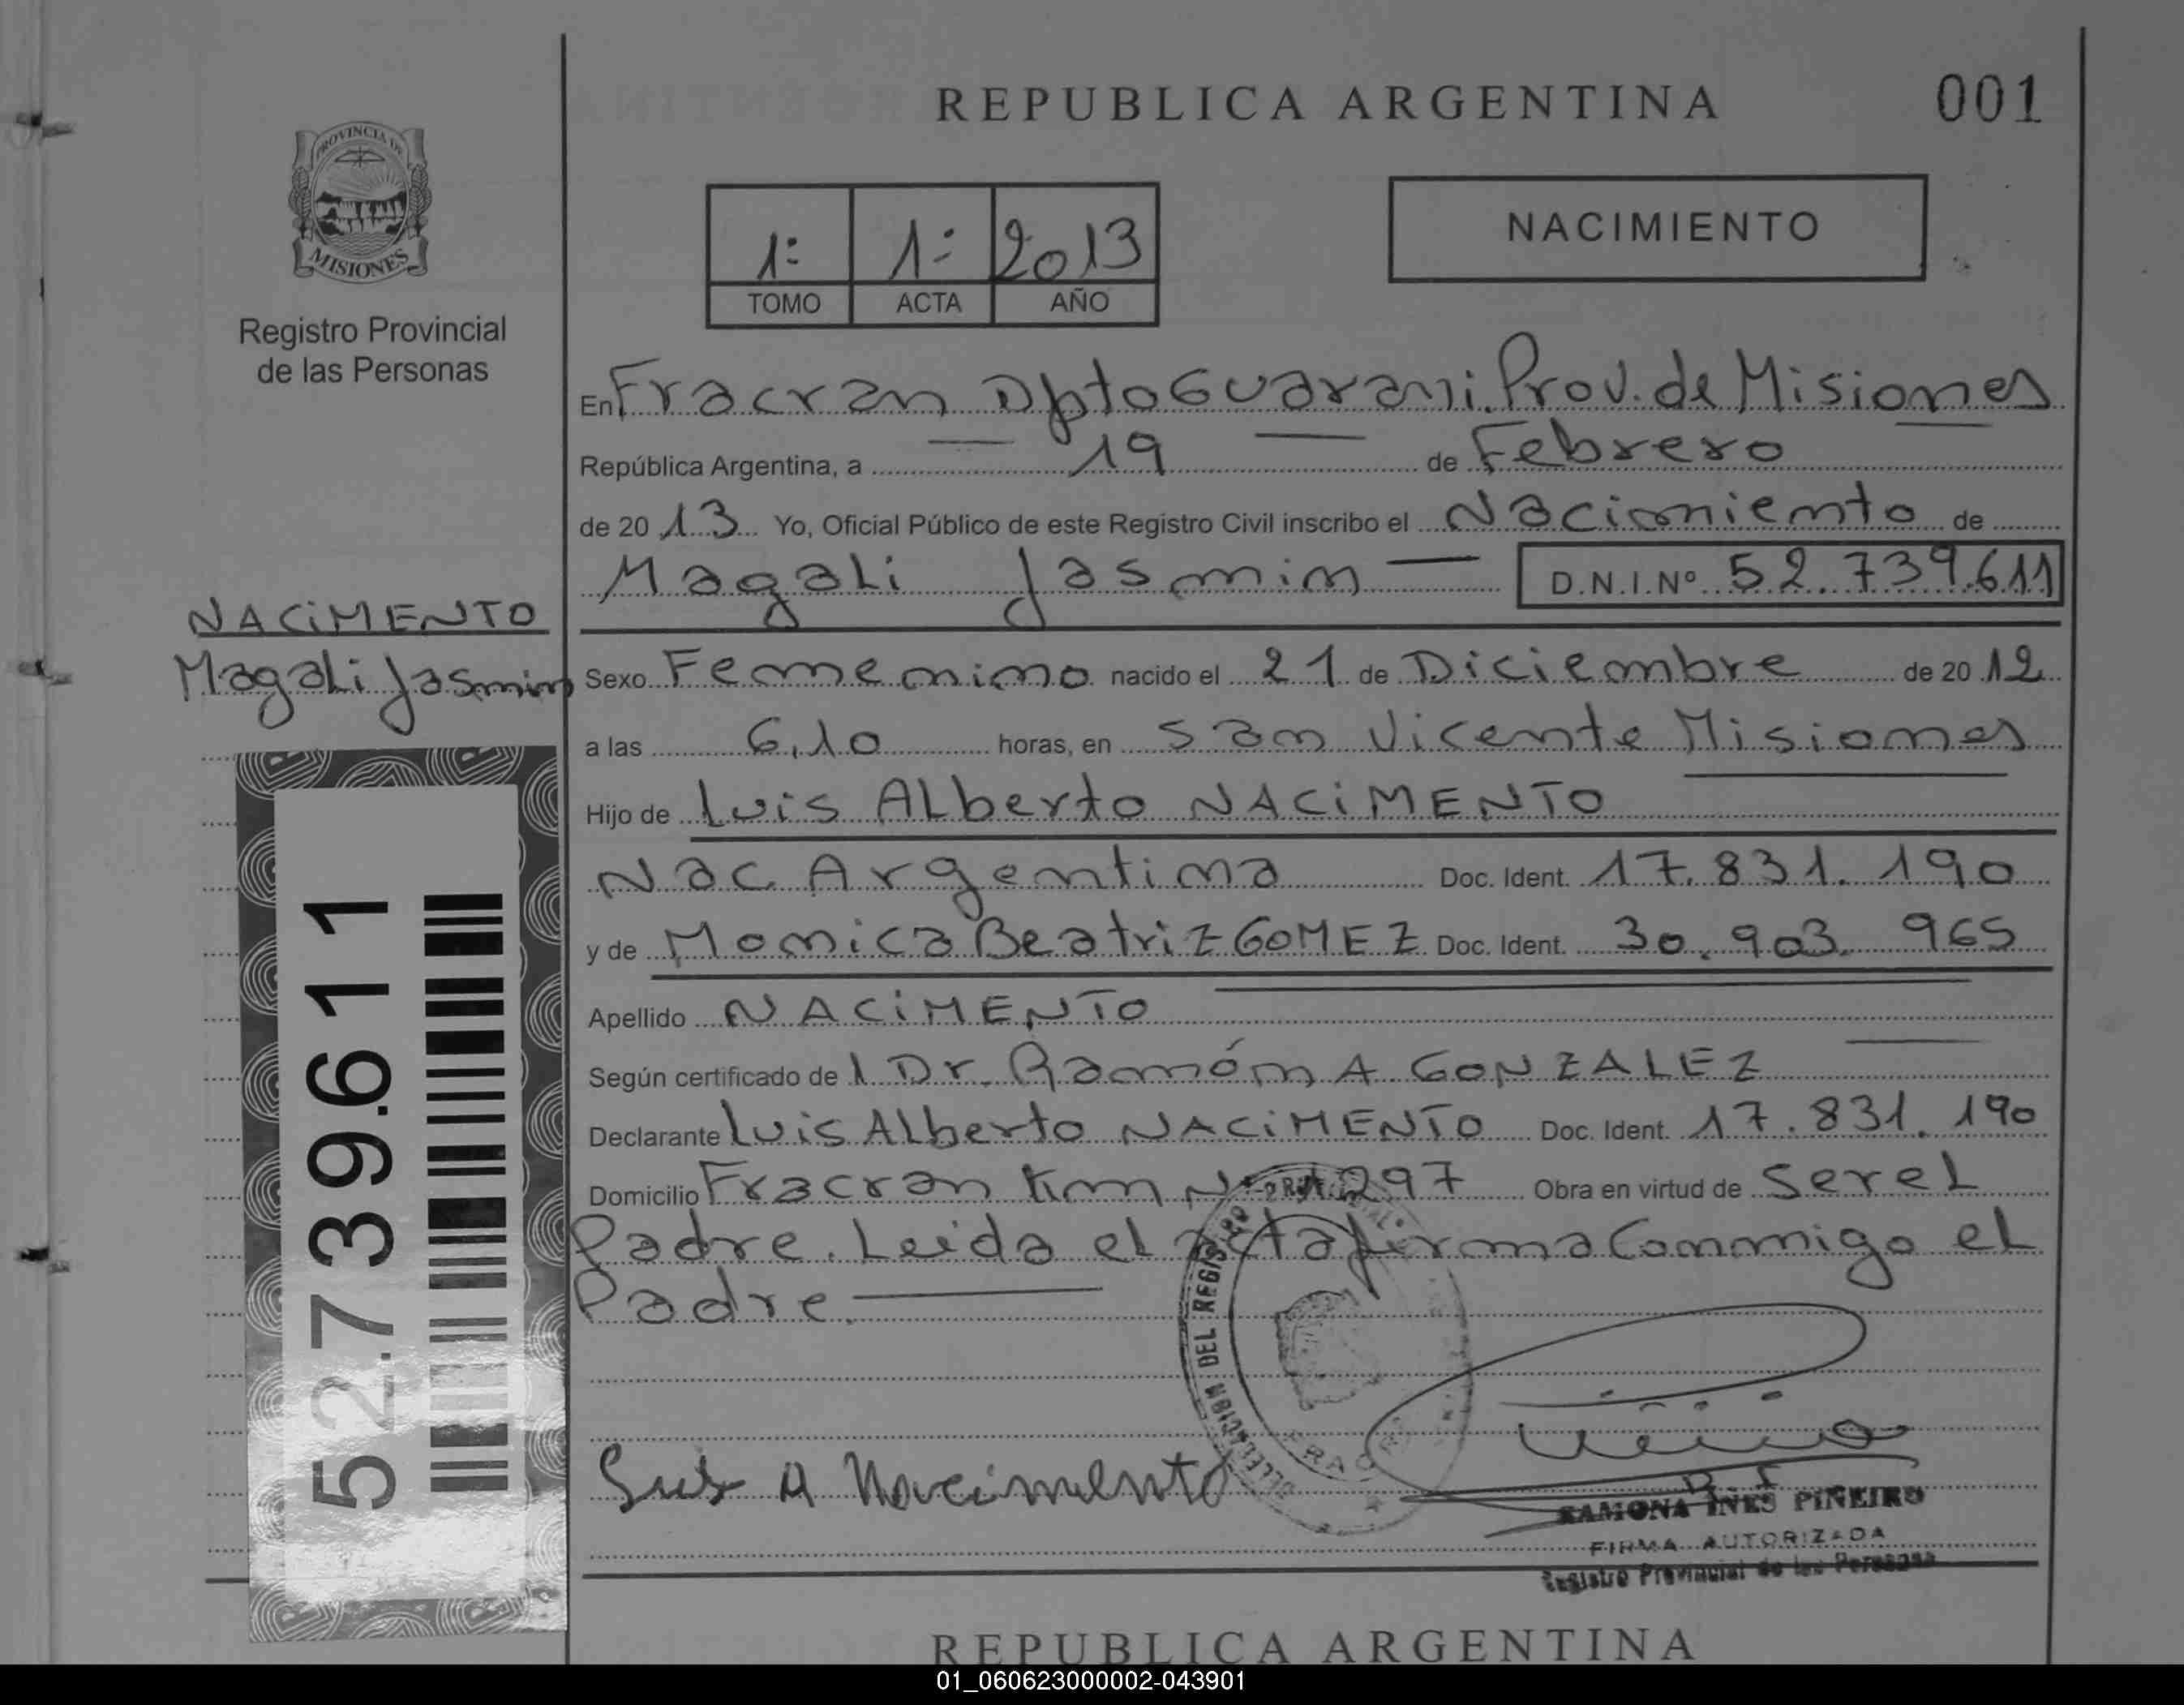 REPUBLICA ARGENTINA
001
PROVINCIA DE
MISIONES
Registro Provincial
de las Personas
1: 1: 2013
TOMO ACTA AÑO
NACIMIENTO
En Fracran Dpto Guarani. Prov. de Misiones
República Argentina, a 19 de Febrero
de 20 13 Yo, Oficial Público de este Registro Civil inscribo el Nacimiento de
Magali Jasmin D.N.I.Nº 52.739.611
NACIMENTO
Magali Jasmin
Sexo Femenino nacido el 21 de Diciembre de 20 12
a las 6,10 horas, en San Vicente Misiones
Hijo de Luis Alberto NACIMENTO
Nac Argentina Doc. Ident. 17.831.190
y de Monica Beatriz GOMEZ Doc. Ident. 30.903.965
Apellido NACIMENTO
Según certificado de Dr. Ramón A GONZALEZ
Declarante Luis Alberto NACIMENTO Doc. Ident. 17.831.190
Domicilio Fracran Km Nº 1297 Obra en virtud de ser el
Padre. Leida el acta firma Conmigo el
Padre.
52.739.611
DELEGACION DEL REGISTRO PROVINCIAL
A Nacimento
RAMONA INES PIÑEIRO
FIRMA AUTORIZADA
Registro Provincial de las Personas
REPUBLICA ARGENTINA
01_060623000002-043901